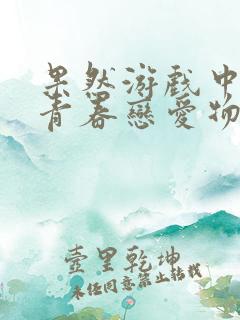 果然游戏中
青春戀愛物
壹里乾坤
未经同意禁止转载